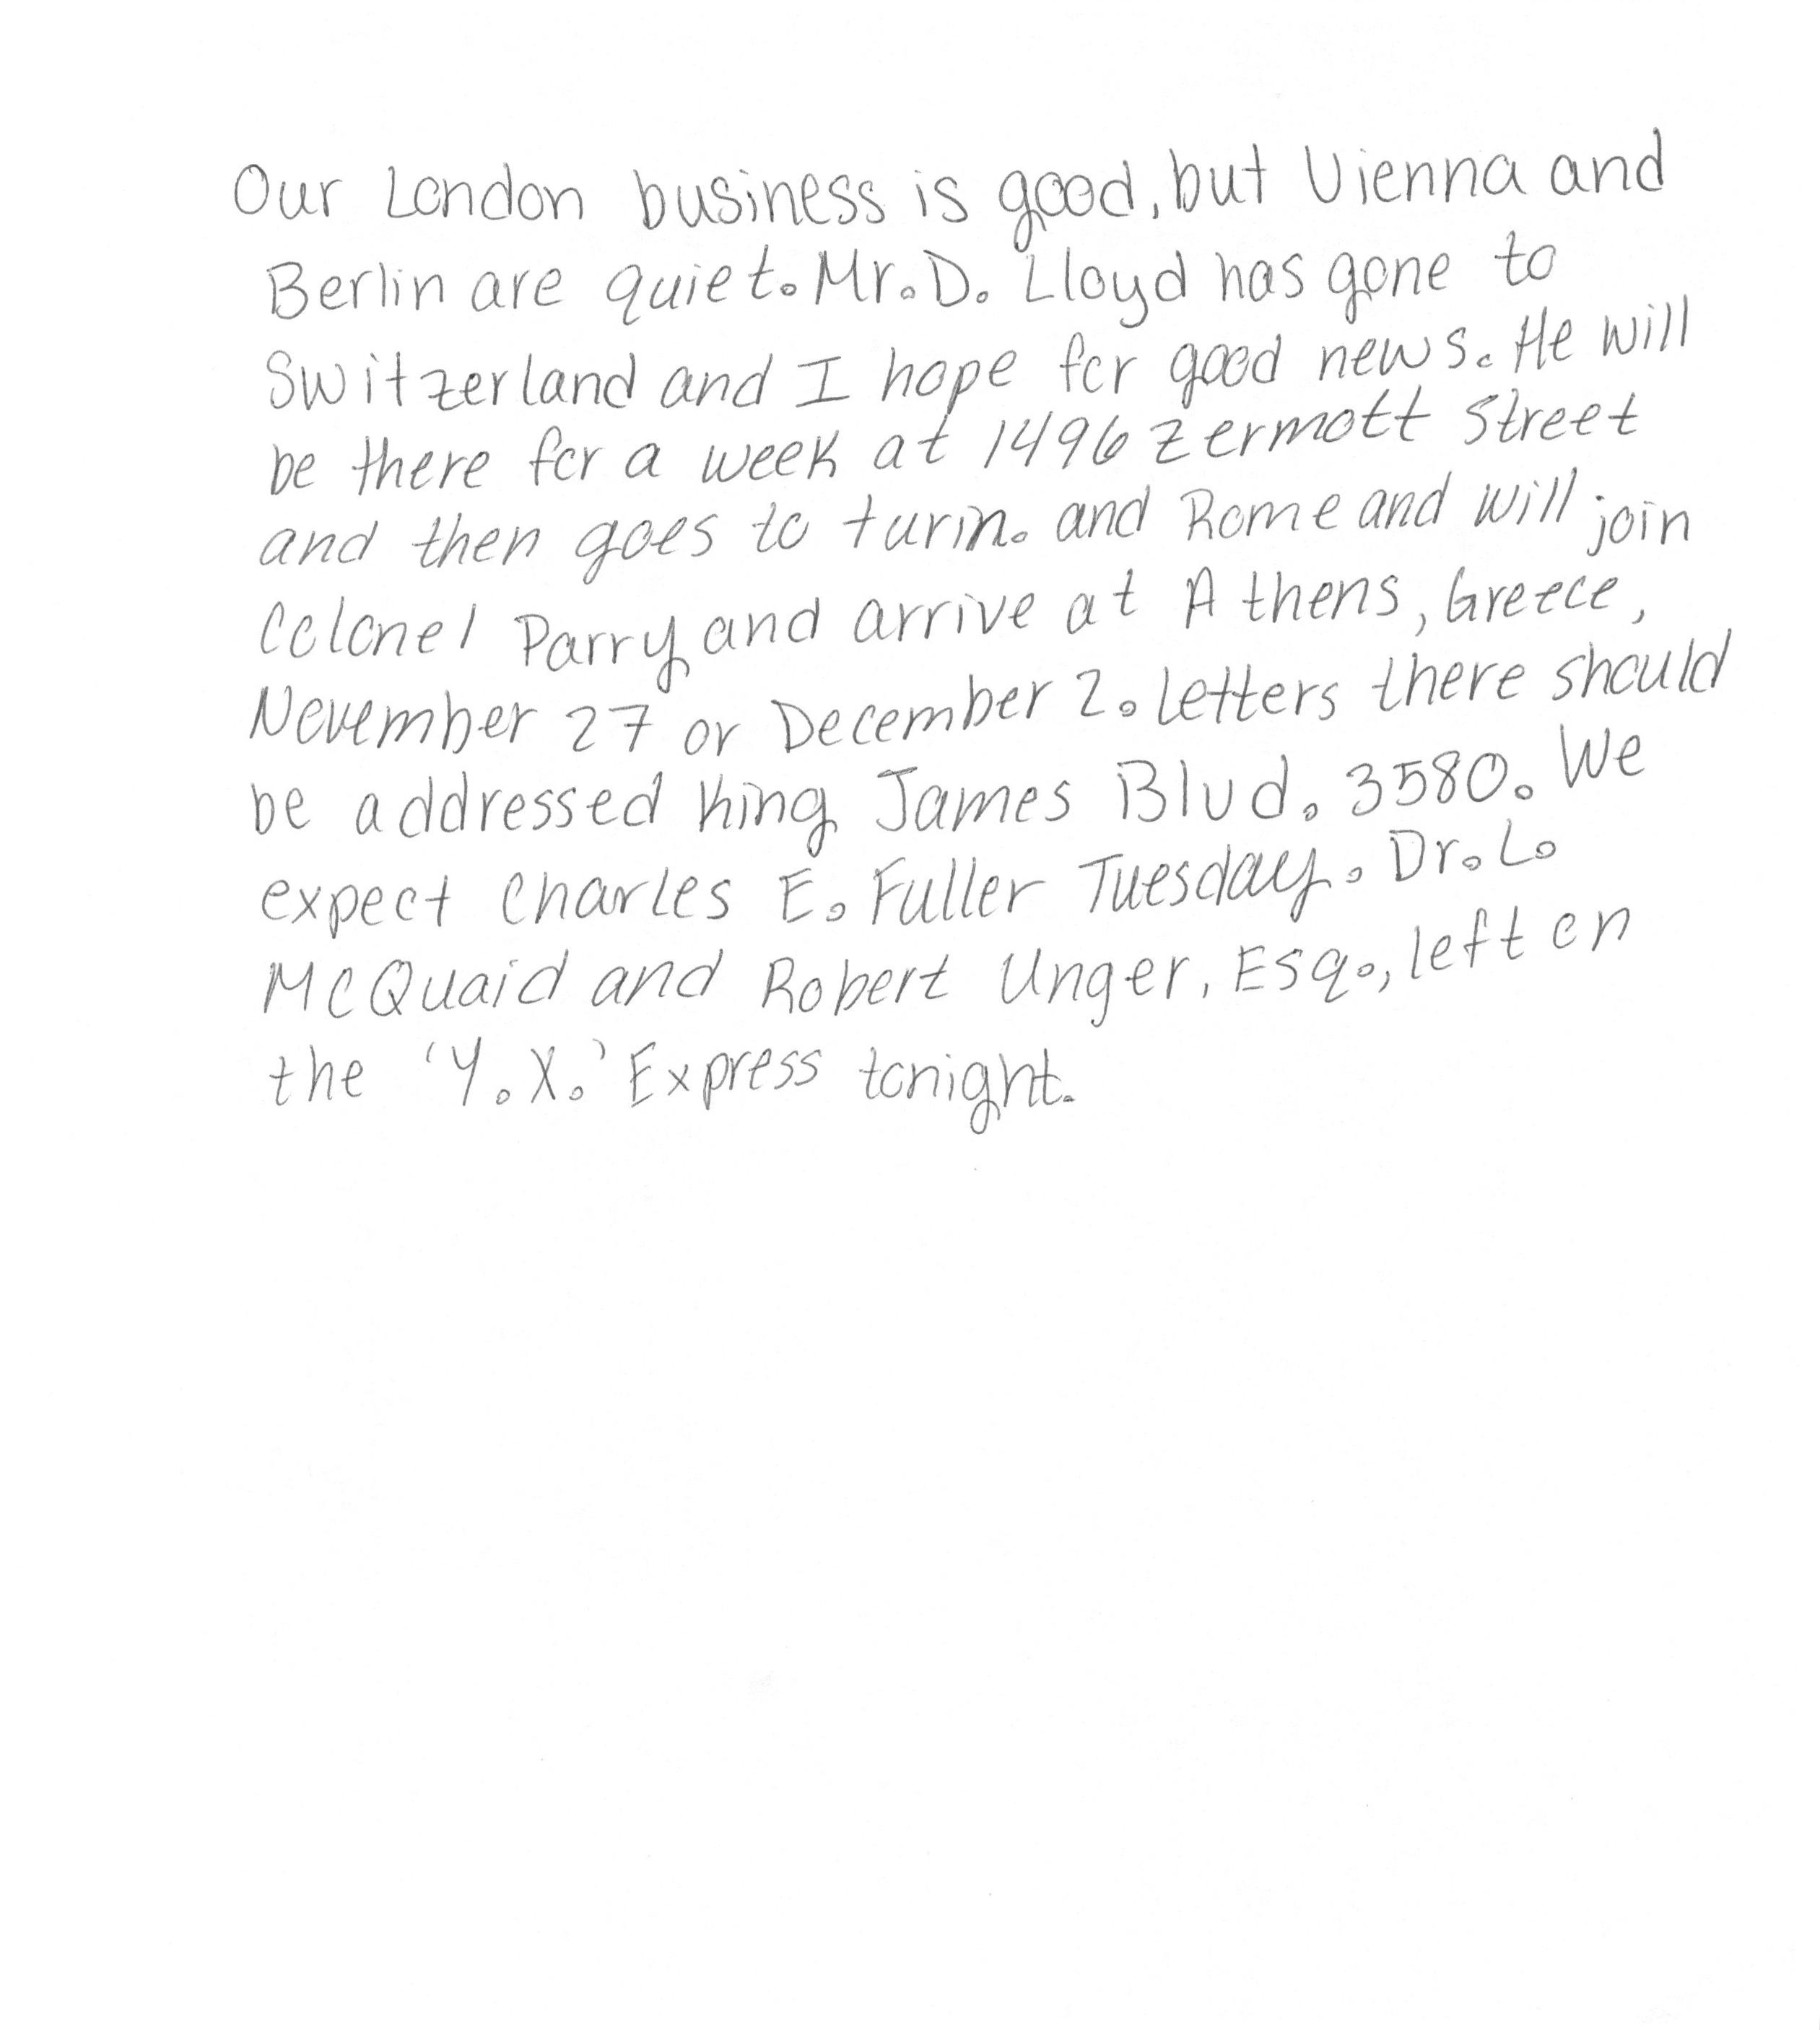 Our London business is good, but Vienna and
Berlin are quiet. Mr. D. Lloyd has gone to
Switzerland and I hope for good news. He will
be there for a week at 1496 Zermott Street
and then goes to turin. and Rome and will join
Colonel Parry and arrive at Athens, Greece,
November 27 or December 2. Letters there should
be addressed King James Blvd. 3580. We
expect Charles E. Fuller Tuesday. Dr. L.
McQuaid and Robert Unger, Esq., left on
the 'Y.X.' Express tonight.